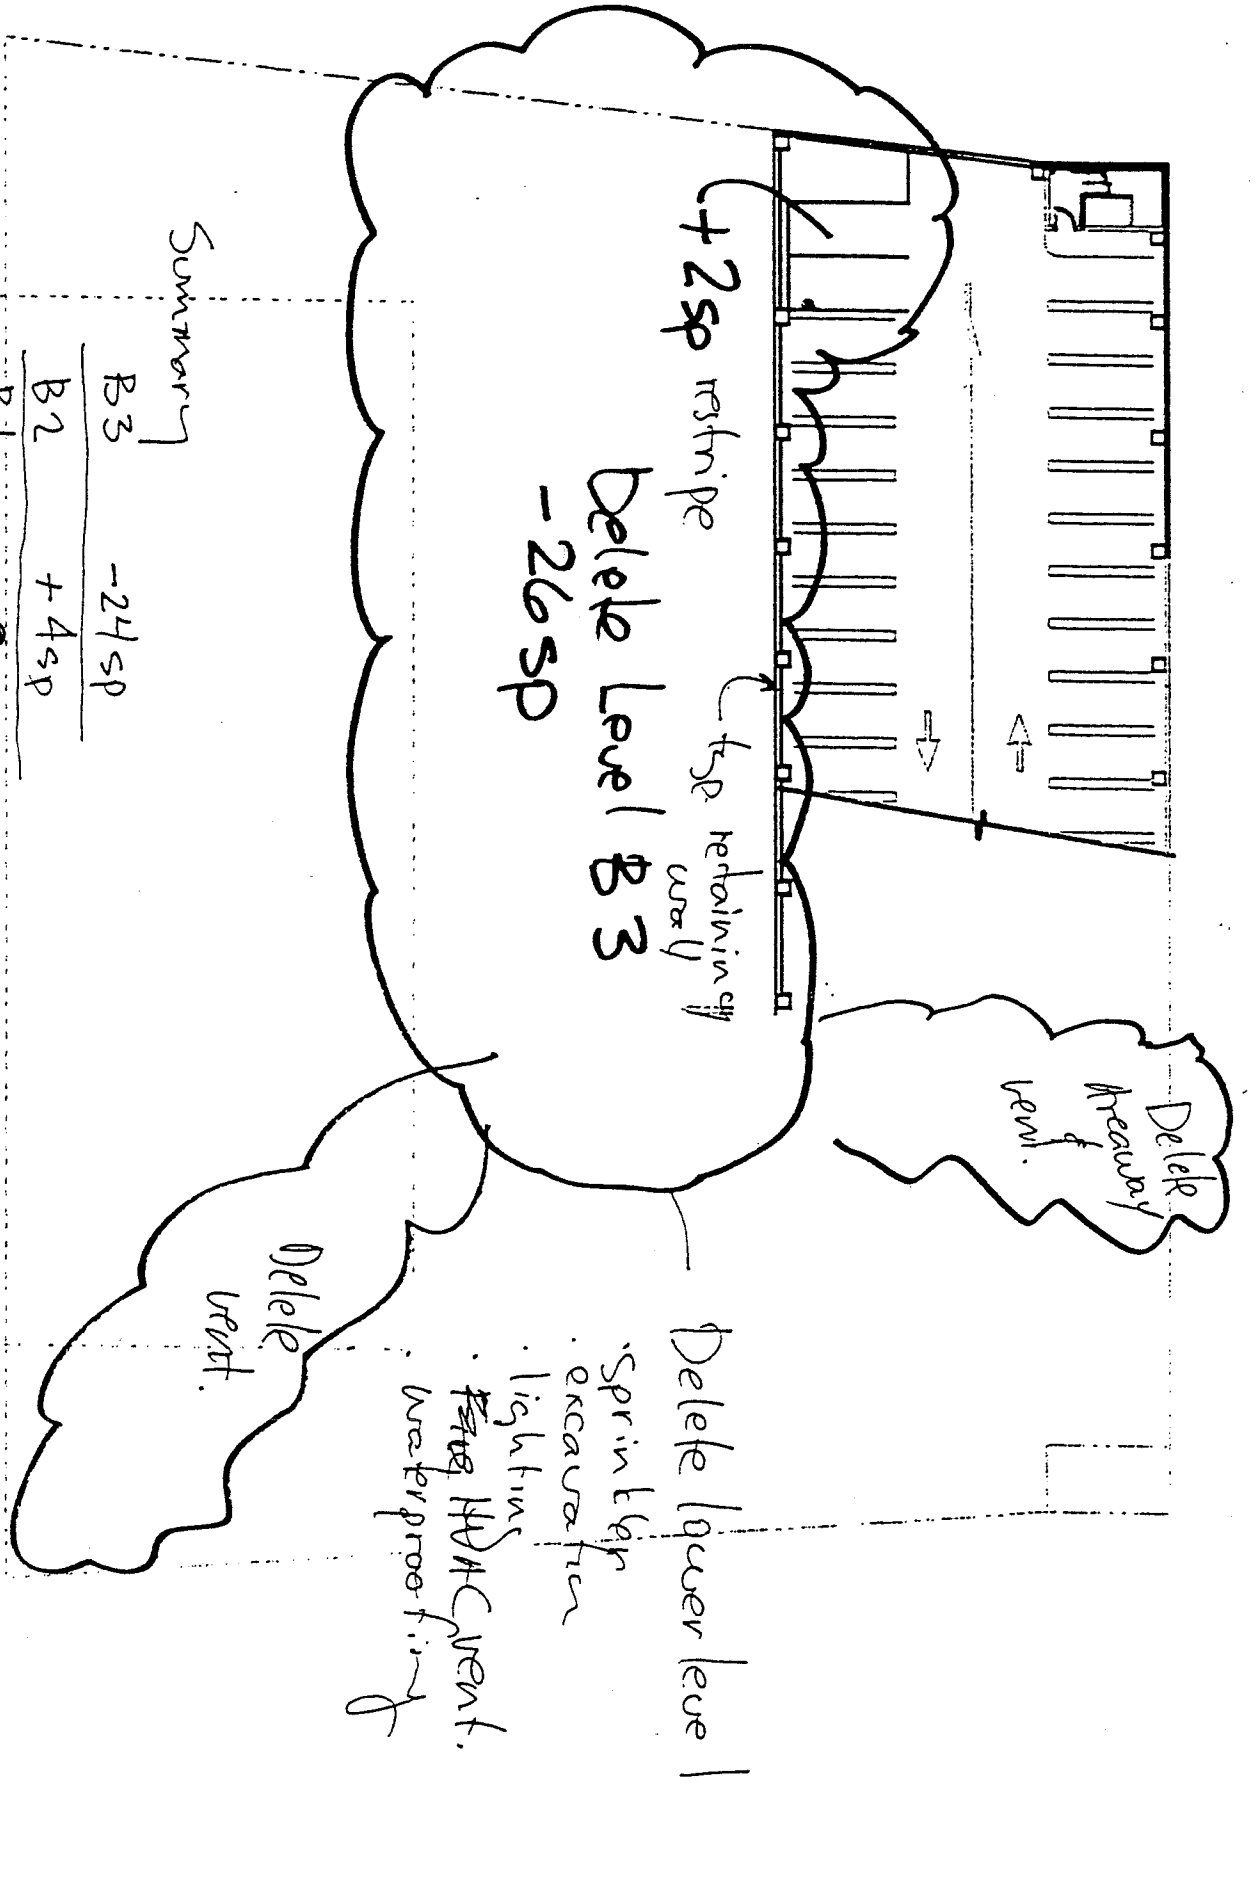 +2sp restripe
typ. retaining
wall
Delete Level B3
-26sp
Delete
Areaway
&
vent.
Delete lower level
· sprinkler
· excavation
· lighting
· HVAC, vent.
· waterproofing
Delete
vent.
Summary
B3 -24sp
B2 +4sp